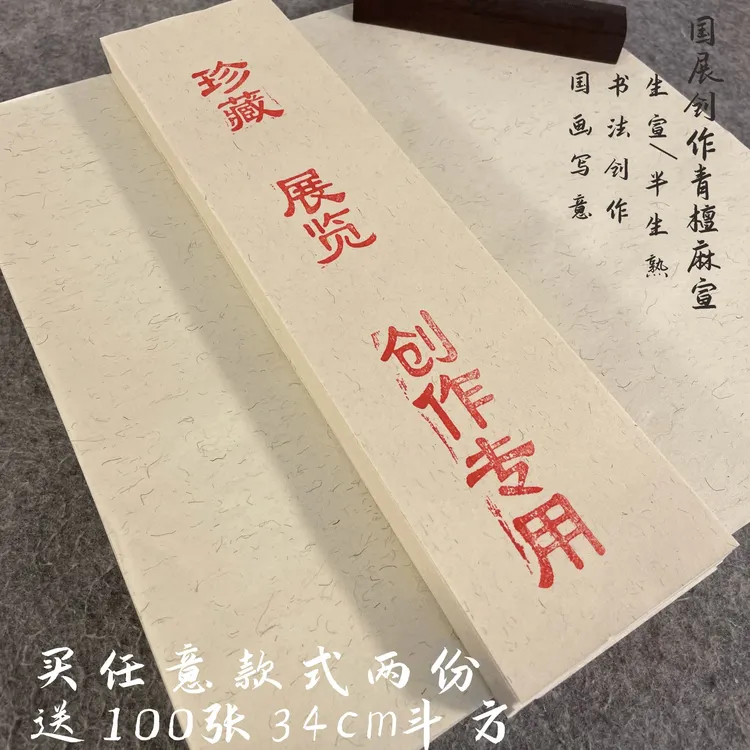 国展创作青檀麻宣
生宣/半生熟
书法创作
国画写意
珍藏
展览
创作专用
买任意款式两份
送100张34cm斗方